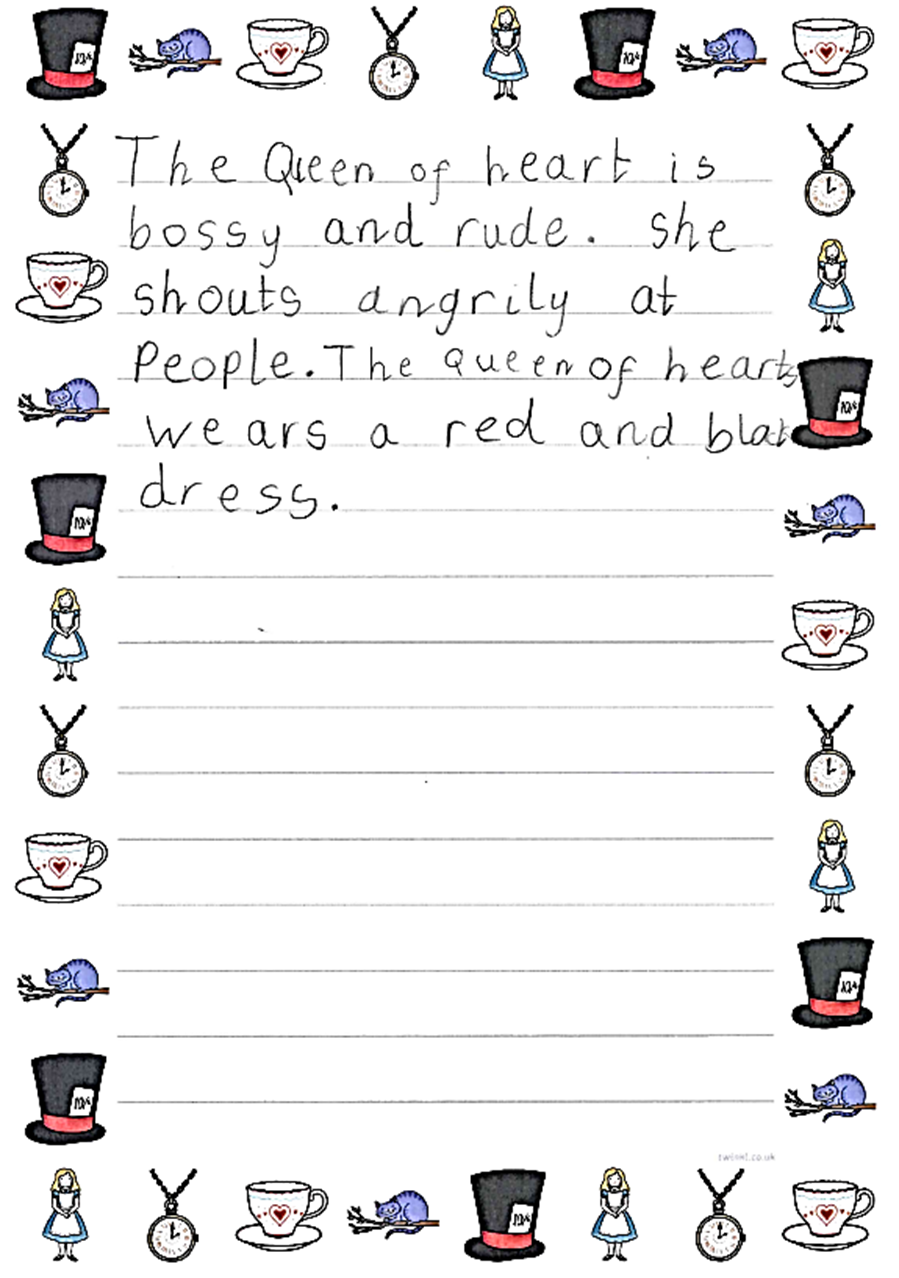 The Queen of heart is
bossy and rude. She
shouts angrily at
People. The queen of hearts
wears a red and blak
dress.
twinkl.co.uk